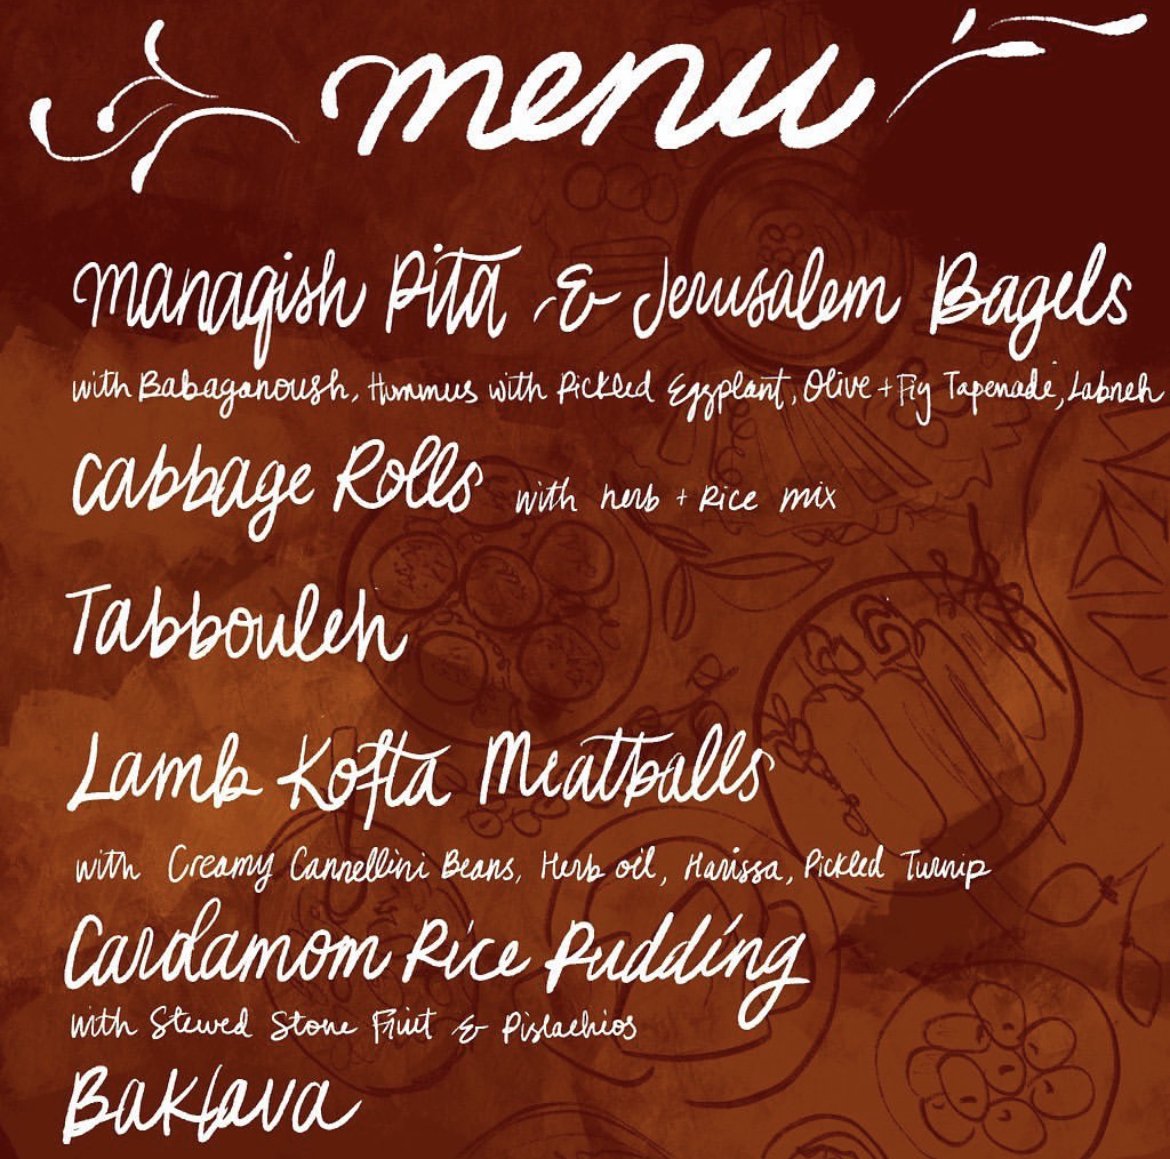 menu
Manaqish Pita & Jerusalem Bagels
with Babaganoush, Hummus with Pickled Eggplant, Olive + Fig Tapenade, Labneh
Cabbage Rolls with herb + Rice mix
Tabbouleh
Lamb Kofta Meatballs
with Creamy Cannellini Beans, Herb oil, Harissa, Pickled Turnip
Cardamom Rice Pudding
with Stewed Stone Fruit & Pistachios
Baklava